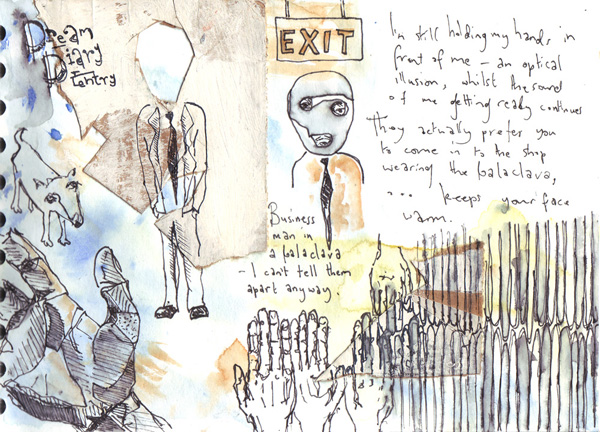 Dream
Diary
Entry
EXIT
I'm still holding my hands in
front of me – an optical
illusion, whilst the sound
of me getting ready continues
They actually prefer you
to come in to the shop
wearing the balaclava,
... keeps your face
warm.
Business
man in
a balaclava
– I can't tell them
apart anyway.